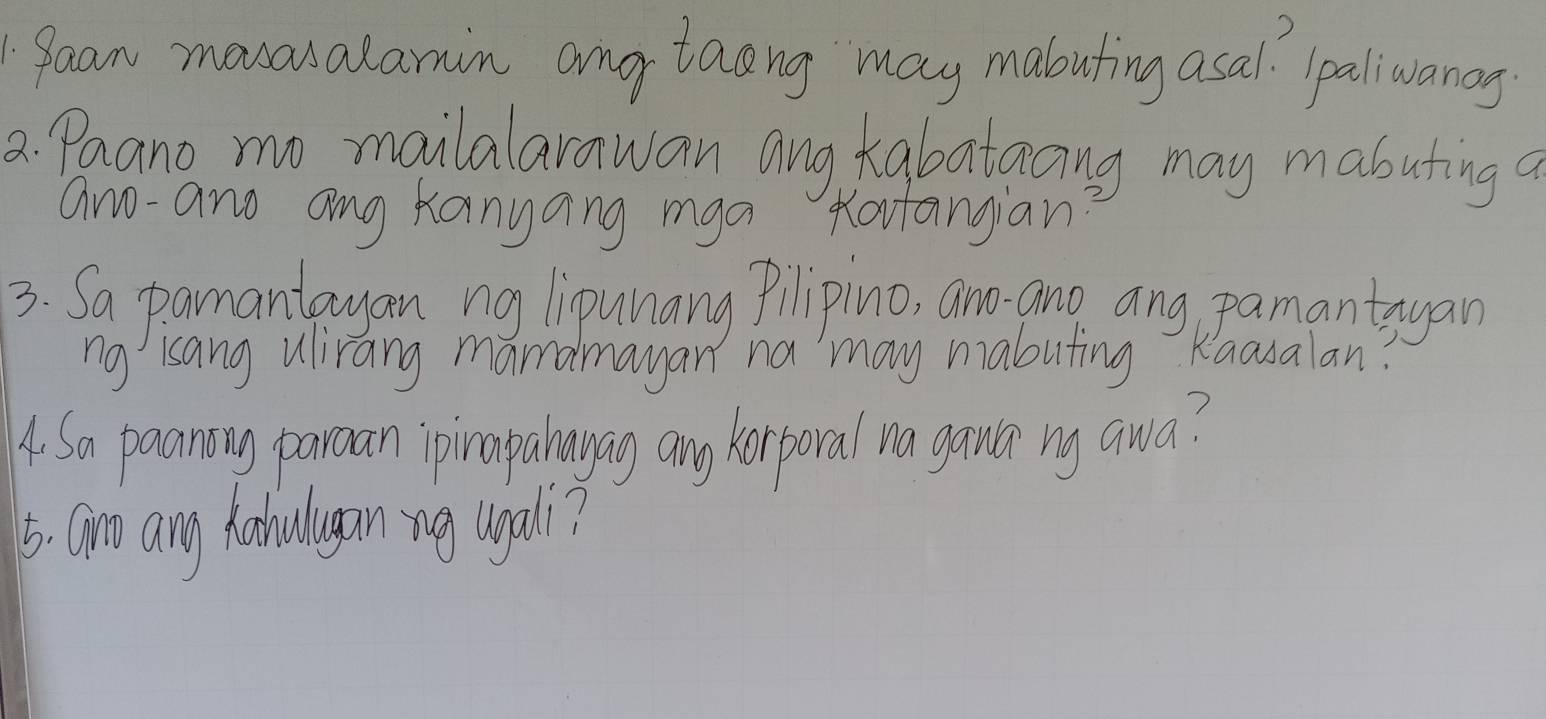 1. Saan masasalamin ang taong may mabuting asal? Ipaliwanag.
2. Paano mo mailalarawan ang kabataang may mabuting a
ano-ano ang kanyang mga katangian?
3. Sa pamantayan ng lipunang Pilipino, ano-ano ang pamantayan
ng isang ulirang mamamayan na may mabuting kaasalan?
4. Sa paanong paraan ipinapahayag ang korporal na gawa ng awa?
5. Ano ang kahulugan ng ugali?